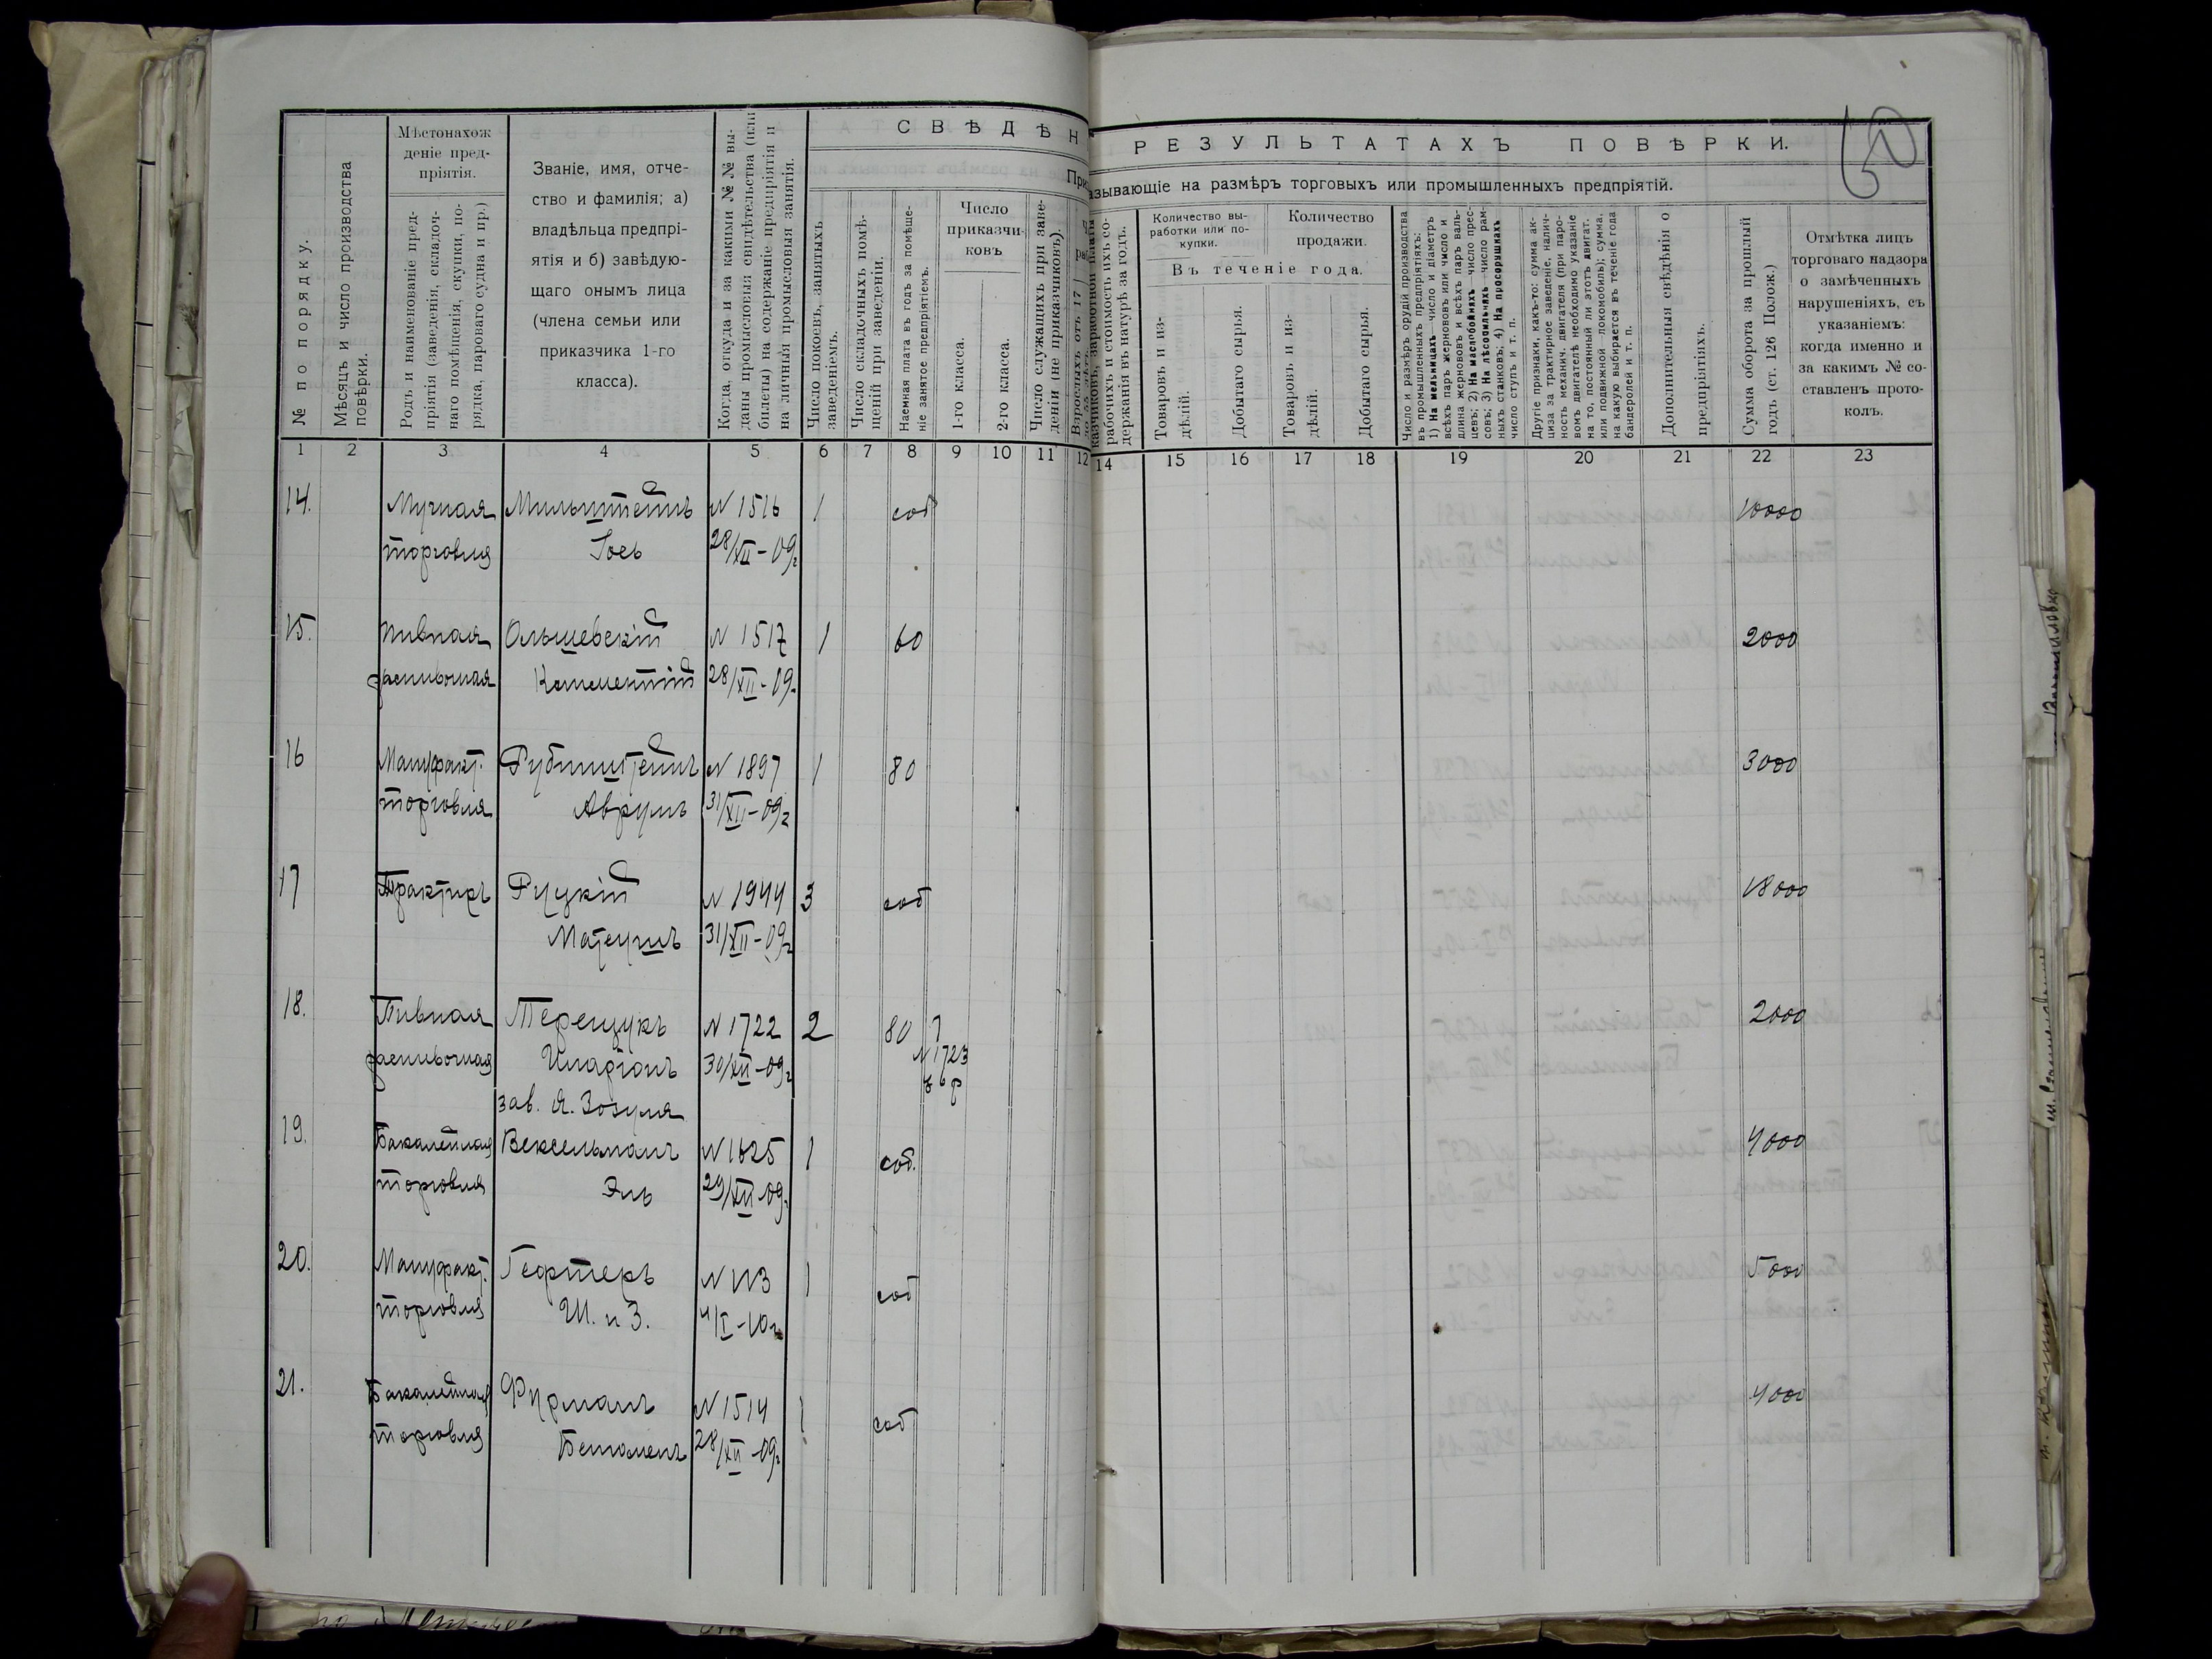 50
СВѢДѢН
РЕЗУЛЬТАТАХЪ ПОВѢРКИ.
При
азывающіе на размѣръ торговыхъ или промышленныхъ предпріятій.
№ по порядку.
Мѣсяцъ и число производства
повѣрки.
Мѣстонахож
деніе пред-
пріятія.
Родъ и наименованіе пред-
пріятія (заведенія, складоч-
наго помѣщенія, скупки, по-
рядка, парового судна и пр.)
Званіе, имя, отче-
ство и фамилія; а)
владѣльца предпрі-
ятія и б) завѣдую-
щаго онымъ лица
(члена семьи или
приказчика 1-го
класса).
Когда, откуда и за какими №№ вы-
даны промысловыя свидѣтельства (или
билеты) на содержаніе предпріятія и
на личныя промысловыя занятія.
Число покоевъ, занятыхъ
заведеніемъ.
Число складочныхъ помѣ-
щеній при заведеніи.
Наемная плата въ годъ за помѣще-
ніе занятое предпріятіемъ.
Число
приказчи-
ковъ
1-го класса.
2-го класса.
Число служащихъ при заве-
деніи (не приказчиковъ).
Взрослыхъ отъ 17
казчиковъ, заработной платы
рабочихъ и стоимость ихъ со-
держанія въ натурѣ за годъ.
Количество вы-
работки или по-
купки.
Количество
продажи.
Въ теченіе года.
Товаровъ и из-
дѣлій.
Добытаго сырья.
Товаровъ и из-
дѣлій.
Добытаго сырья.
Число и размѣръ орудій производства
въ промышленныхъ предпріятіяхъ:
1) На мельницахъ число и діаметръ
всѣхъ паръ жернововъ или число и
длина жернововъ и всѣхъ паръ валь-
цевъ; 2) На маслобойняхъ число прес-
совъ; 3) На лѣсопильняхъ число рам-
ныхъ станковъ; 4) На просорушкахъ
число ступъ и т. п.
Другіе признаки, какъ-то: сумма ак-
циза за трактирное заведеніе, налич-
ность механич. двигателя (при паро-
вомъ двигателѣ необходимо указаніе
на то, постоянный ли этотъ двигат.
или подвижной—локомобиль); сумма,
на какую выбирается въ теченіе года
бандеролей и т. п.
Дополнительныя свѣдѣнія о
предпріятіяхъ.
Сумма оборота за прошлый
годъ (ст. 126 Полож.)
Отмѣтка лицъ
торговаго надзора
о замѣченныхъ
нарушеніяхъ, съ
указаніемъ:
когда именно и
за какимъ № со-
ставленъ прото-
колъ.
1 2 3 4 5 6 7 8 9 10 11 12 14 15 16 17 18 19 20 21 22 23
14. Мучная Мильштейнъ N 1516 1 соб 10000
торговля Іось 28/XII-09г
15. Пивная Ольшевскій N 1517 1 60 2000
распивочная Климентій 28/XII-09.
16 Мануфакт. Рубинштейнъ N 1897 1 80 3000
торговля Аврумъ 31/XII-09г
17 Трактиръ Руцкій N 1944 3 соб 18000
Матеушъ 31/XII-09г
18. Пивная Терещукъ N 1722 2 80 1 2000
распивочная Иларіонъ 30/XII-09г N 1723
зав. Я. Зозуля
19. Бакалейная Вексельманъ N 1625 1 соб. 4000
торговля Эль 29/XII-09г
20. Мануфакт. Гефтеръ N 113 1 соб 5000
торговля Ш. и З. 4/I-10г
21. Бакалейная Фурманъ N 1514 1 соб 4000
торговля 28/XII-09г